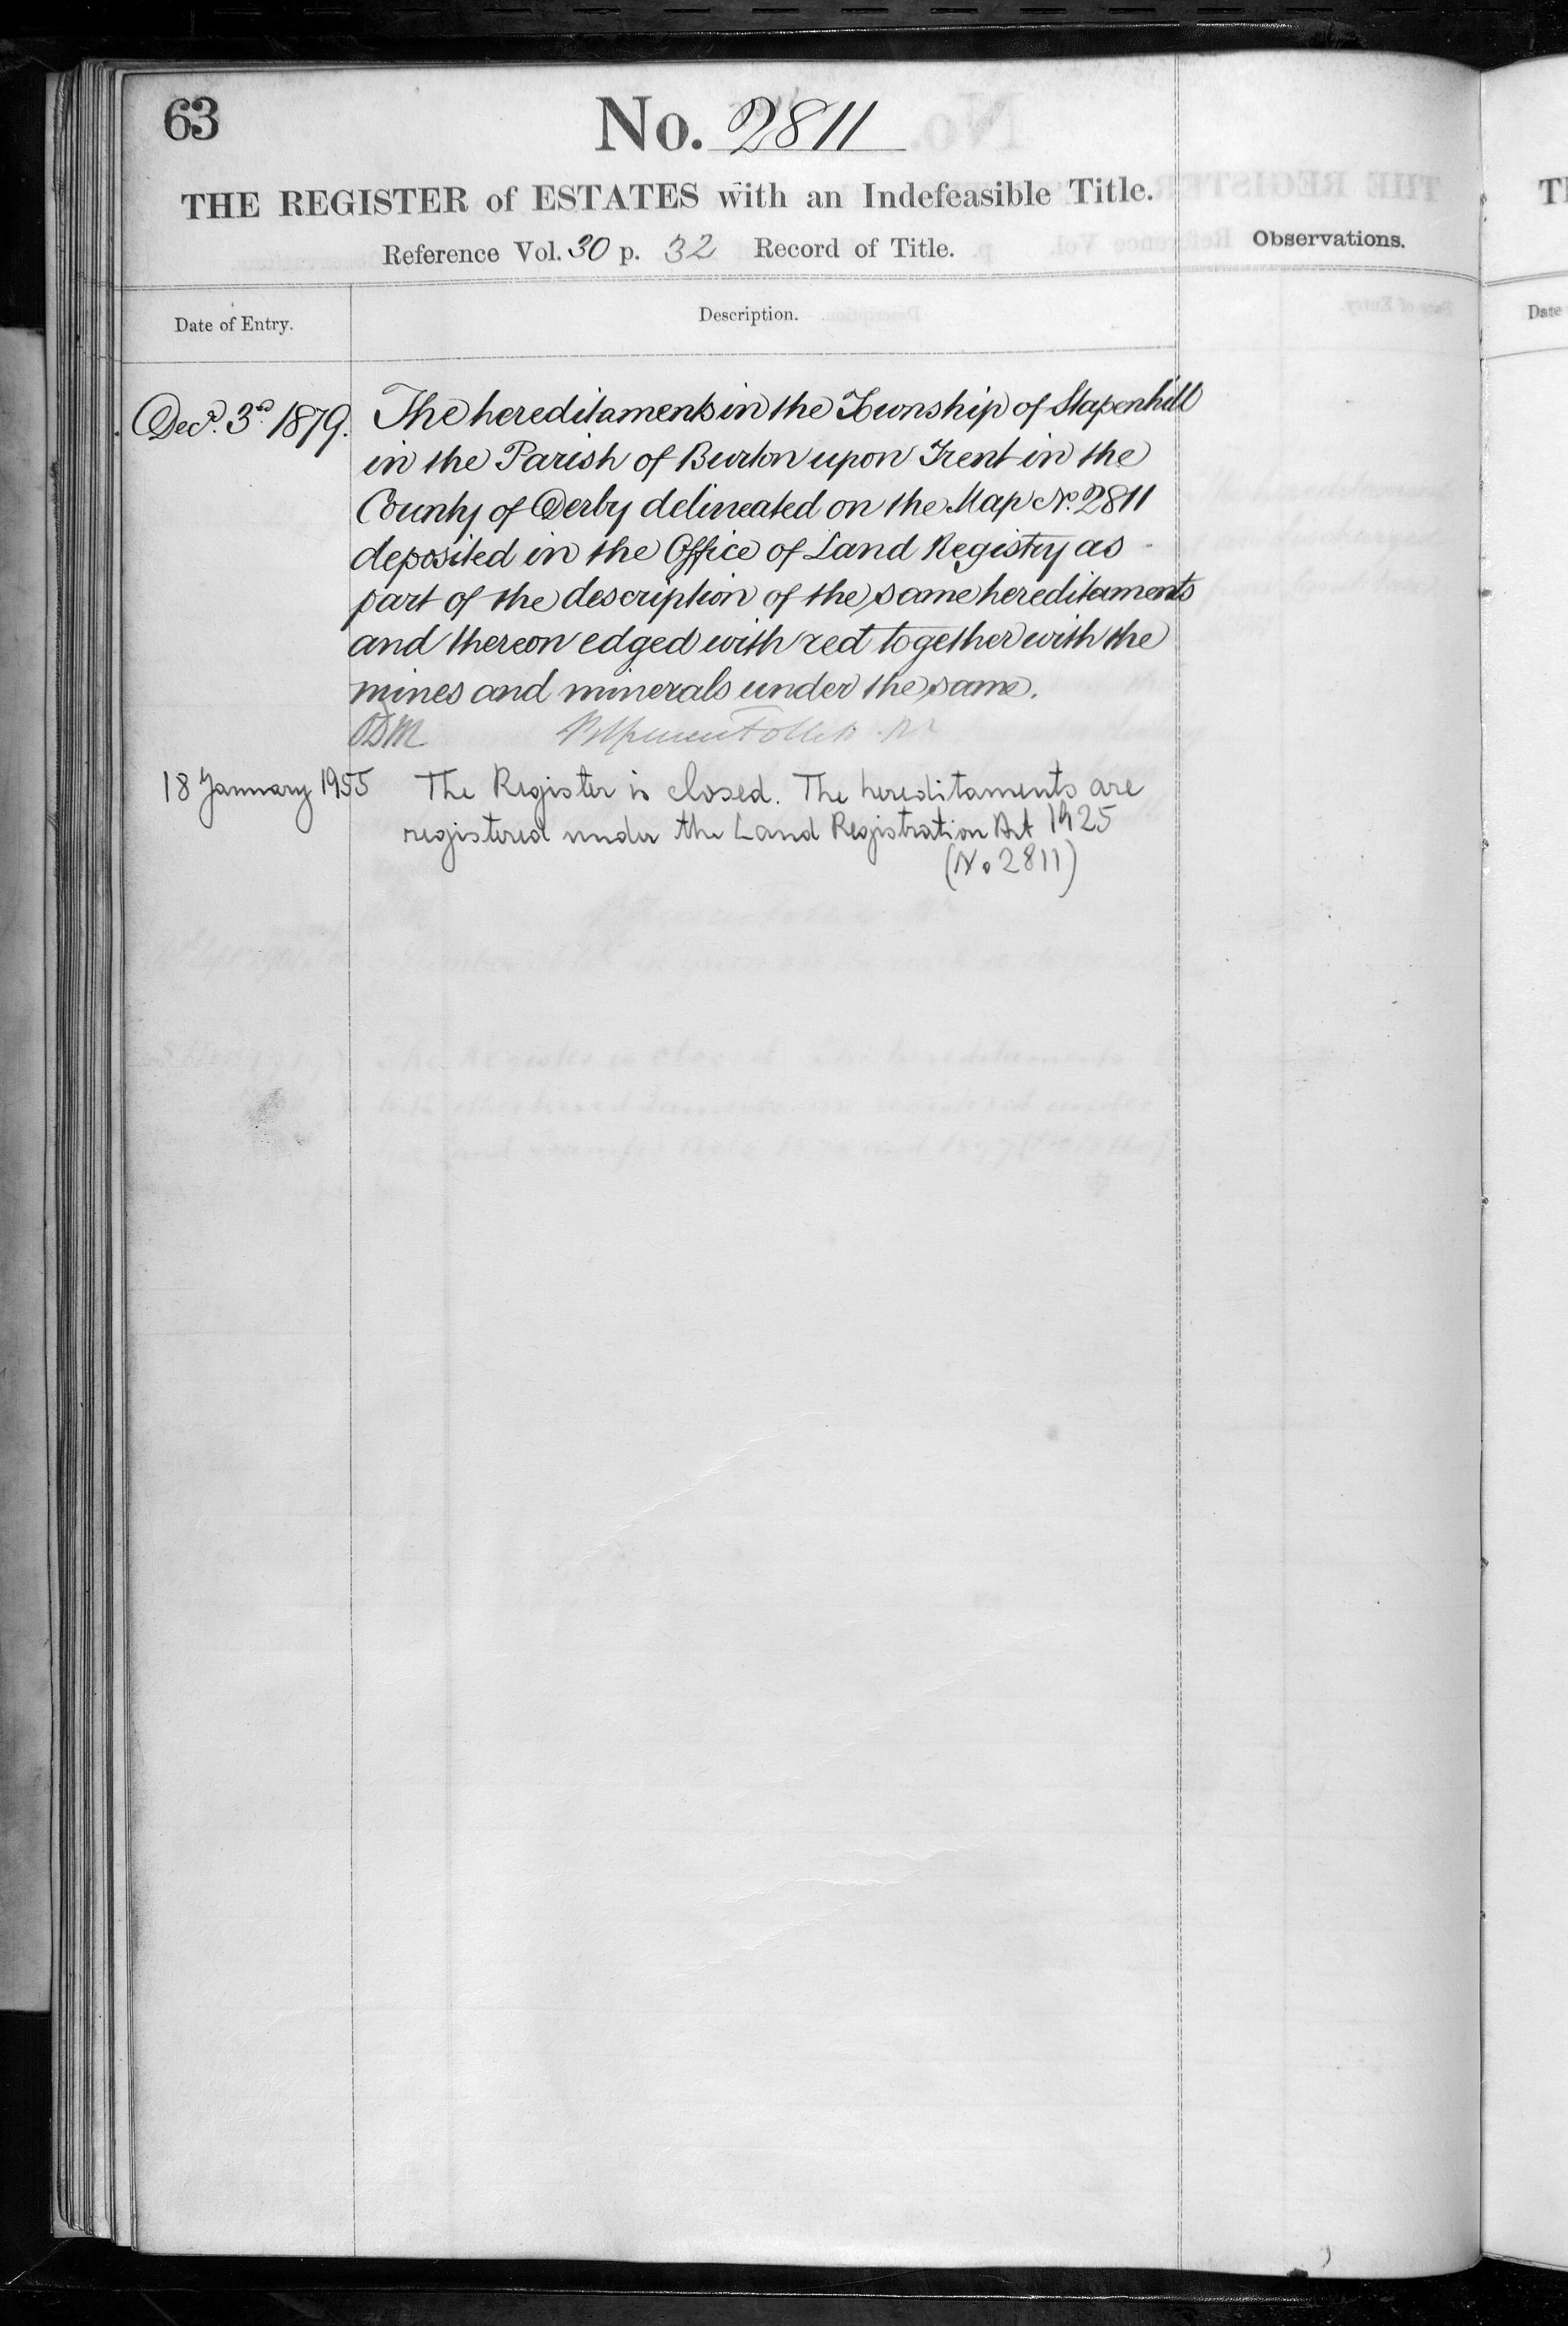 63
No. 2811
THE REGISTER of ESTATES with an Indefeasible Title.
Reference Vol. 30 p. 32 Record of Title.
Observations.
Date of Entry.
Description.
Decr. 3rd 1879.
The hereditaments in the Township of Stapenhill
in the Parish of Burton upon Trent in the
County of Derby delineated on the Map No. 2811
deposited in the Office of Land Registry as -
part of the description of the same hereditaments
and thereon edged with red together with the
mines and minerals under the same.
18 January 1955
The Register is closed. The hereditaments are
registered under the Land Registration Act 1925
(No 2811)
Date